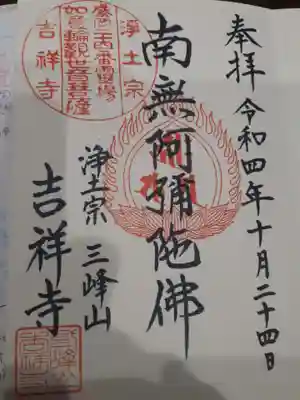 奉拝 令和四年十月二十四日
南無阿彌陀佛
浄土宗 三峰山
吉祥寺
浄土宗
如意輪觀世音菩薩
吉祥寺